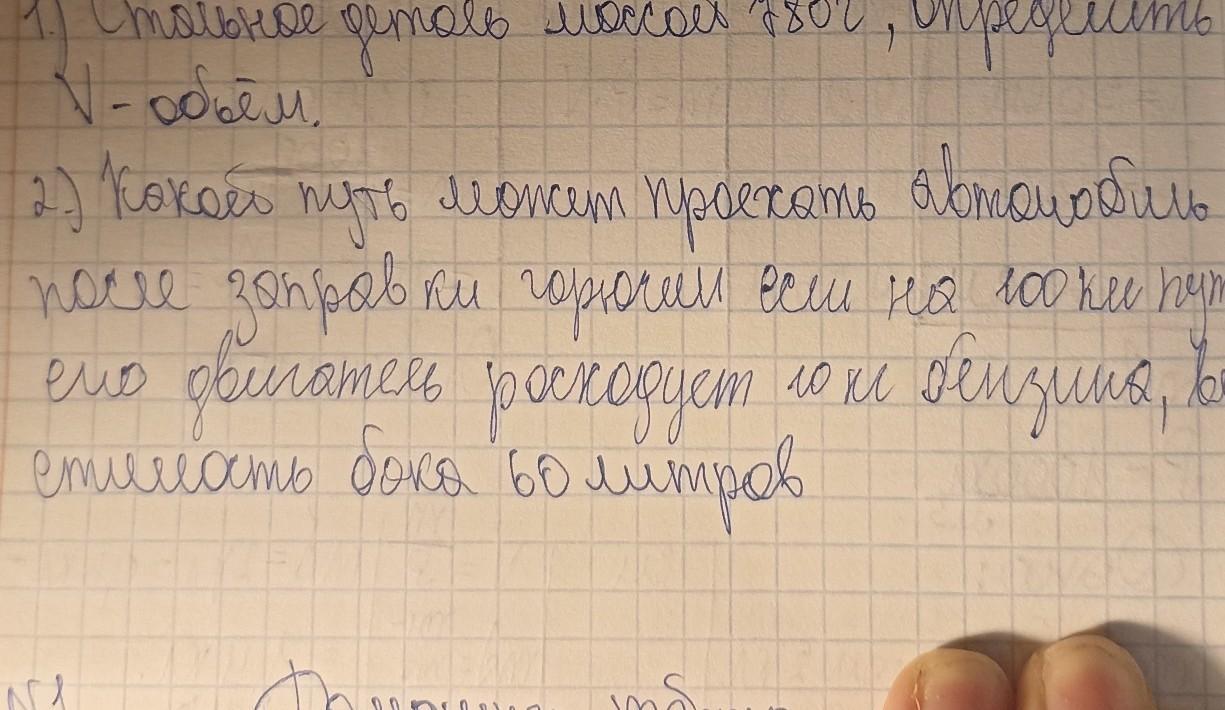 1.) Стальное деталь массой 780г, определить
V - объём.
2.) Какой путь может проехать автомобиль
после заправки горючим если на 100 км пут
его двигатель расходует 10 кг бензина, в
етимость бака 60 литров
№1